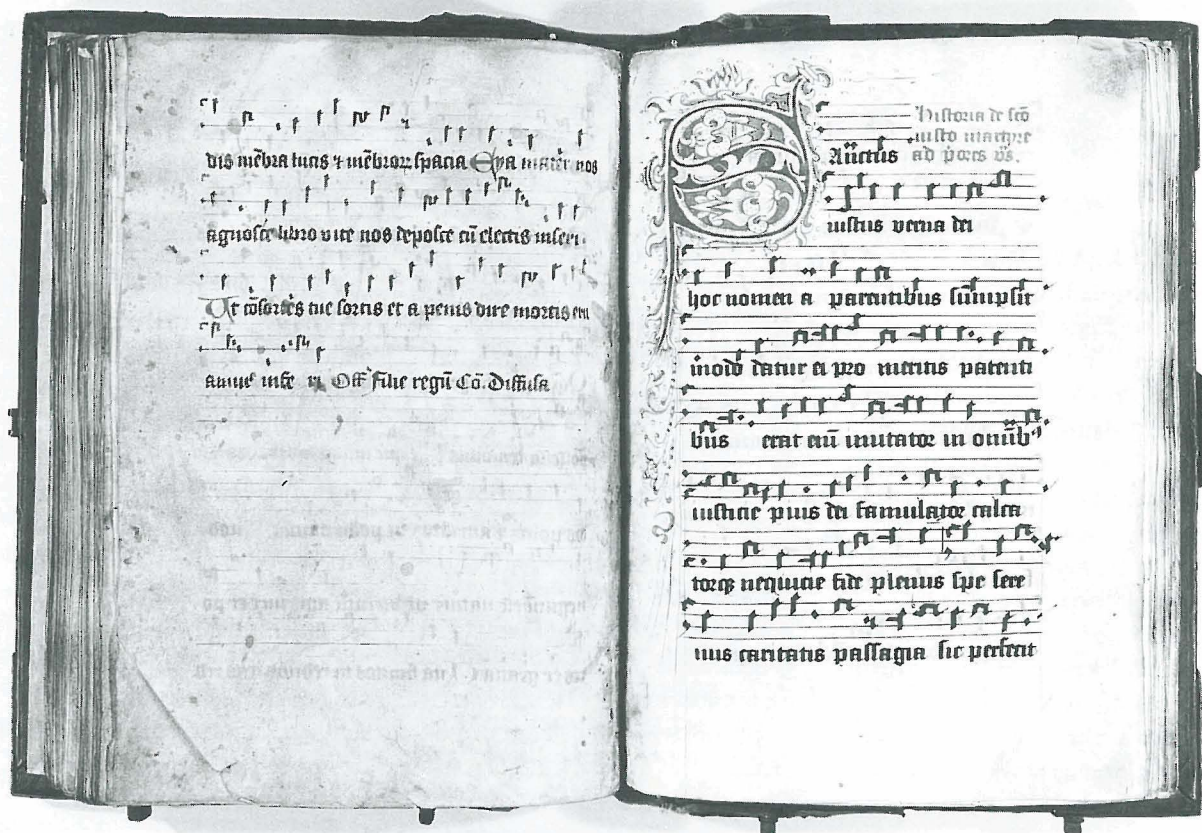 dis mēbra lucis ⁊ mēbroꝝ spacia Eya mater nos
agnosce libro vite nos deposce cū electis inseri.
Ut cōsortes tue sortis et a penis dire mortis
Off Filie regū Cō. Diffusa
Historia de scō
iusto martyre
ad vs.
SAnctus
iustus verna dei
hoc nomen a parentibus sumpsit
datur ei pro meritis patenti
bus erat eni imitator in omib9
iusticie pius dei famulator calca
torqꝫ nequicie fide plenus spe sere
nus caritatis passagia sic perfecit